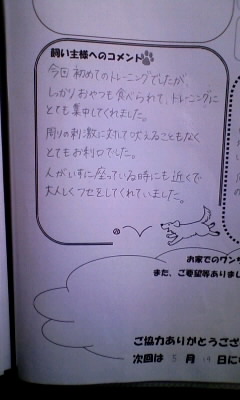 飼い主様へのコメント
今回初めてのトレーニングでしたが、
しっかりおやつも食べられて、トレーニングに
とても集中してくれました。
周りの刺激に対して吠えることもなく
とてもお利口でした。
人がいすに座っている時にも近くで
大人しくフセをしてくれていました。
お家でのワンち
また、ご要望等ありまし
ご協力ありがとうござ
次回は 5 月 19 日に